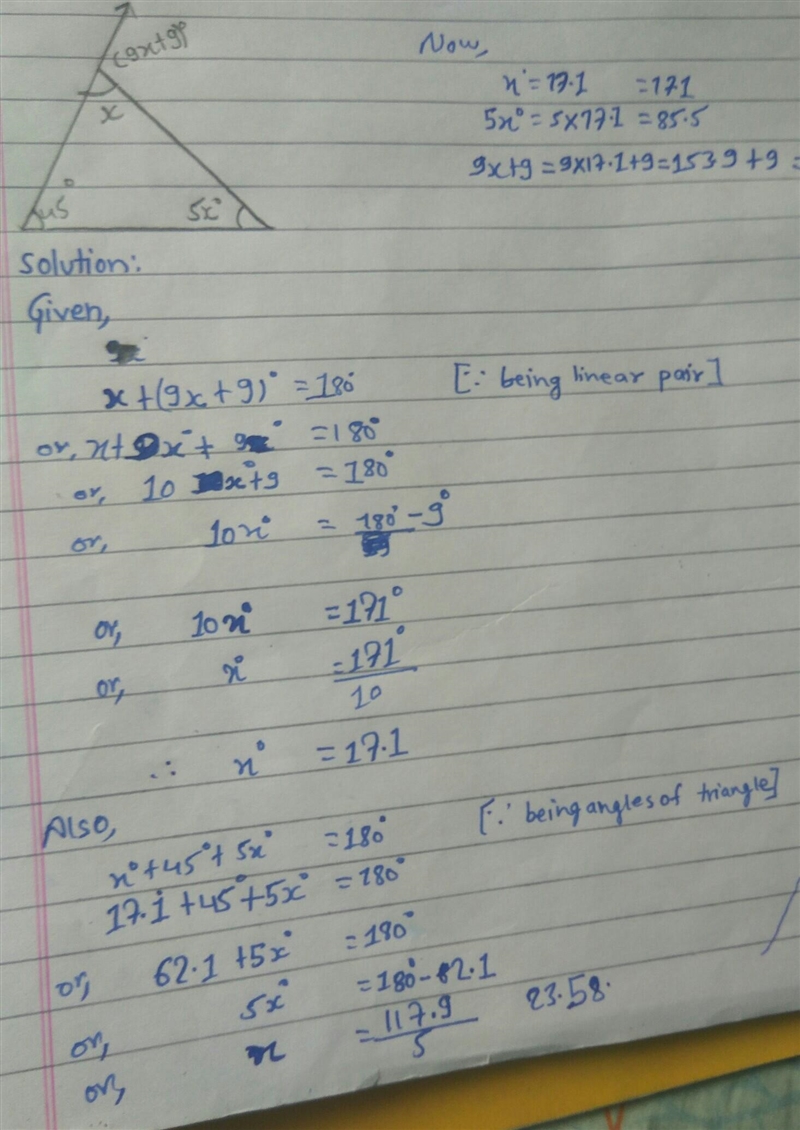 (9x+9)°
x
45°
5x°
Now,
x° = 17.1 = 171
5x° = 5×17.1 = 85.5
9x+9 = 9×17.1+9 = 153.9+9 =
Solution:
Given,
x+(9x+9)° = 180° [∵ being linear pair]
or, x+9x°+ 9° = 180°
or, 10x°+9 = 180°
or, 10x° = 180°-9°
or, 10x° = 171°
or, x° = 171°
10
∴ x° = 17.1
Also,
x°+45°+5x° = 180° [∵ being angles of triangle]
17.1+45°+5x° = 180°
or, 62.1+5x° = 180°
or, 5x° = 180°-62.1
or, x = 117.9 23.58.
5
or,